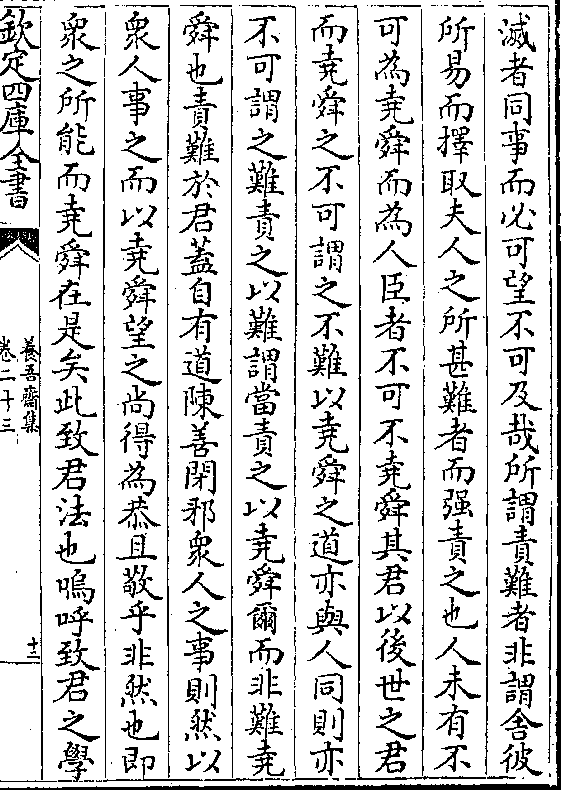 滅者同事而必可望不可及哉所謂責難者非謂舍彼
所易而擇取夫人之所甚難者而强責之也人未有不
可為堯舜而為人臣者不可不堯舜其君以後世之君
而堯舜之不可謂之不難以堯舜之道亦與人同則亦
不可謂之難責之以難謂當責之以堯舜爾而非難堯
舜也責難於君蓋自有道陳善閉邪衆人之事則然以
衆人事之而以堯舜望之尚得為恭且敬乎非然也即
衆之所能而堯舜在是矣此致君法也嗚呼致君之學
欽定四庫全書
養吾齋集
卷二十三
十三